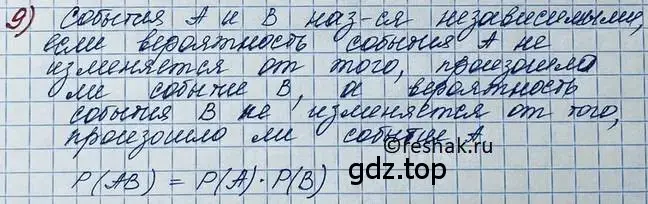 9) События А и В наз-ся независимыми,
если вероятность события А не
изменяется от того, произошло
ли событие В, а вероятность
события В не изменяется от того,
произошло ли событие А
©reshak.ru
gdz.top
P(AB) = P(A)·P(B)